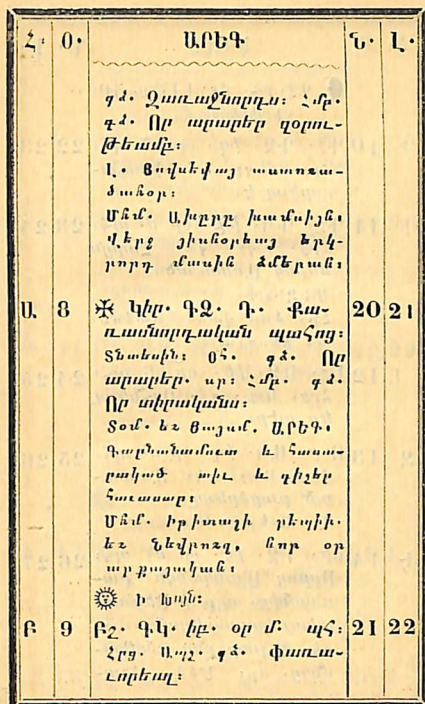 Հ. Օ. ԱՐԵԳ Ն. Լ.
գձ. Զառաջնորդս։ Հմբ.
գձ. Որ արարեր զօրու-
թեամբ։
Լ. Յովսեփայ աստուա-
ծահօր։
Մհմ. Ախըրը խամսիյն։
Վերջ յիսնօրեայ երկ-
րորդ մասին ձմերան։
Ա. 8 Կիր. ԳՁ. Դ. Քա- 20 21
ռասնորդական պահոց։
Տնտեսին։ Օհ. գձ. Որ
արարեր. սր։ Հմբ. գձ.
Որ տիրական
Տօմ. եւ Յայսմ. ԱՐԵԳ.
Գարնանամուտ և հասա-
րակած տիւ և գիշեր
հաւասար։
Մհմ. իրիտաշի րեպիի.
եւ Նեվրուզ, նոր օր
արքայական։
Ի Խոյն։
Բ 9 ԲՇ. ԳԿ. իբ. օր մ. պՀ։ 21 22
Հրց. Ապշ. գձ. փառա-
ւորեալ։